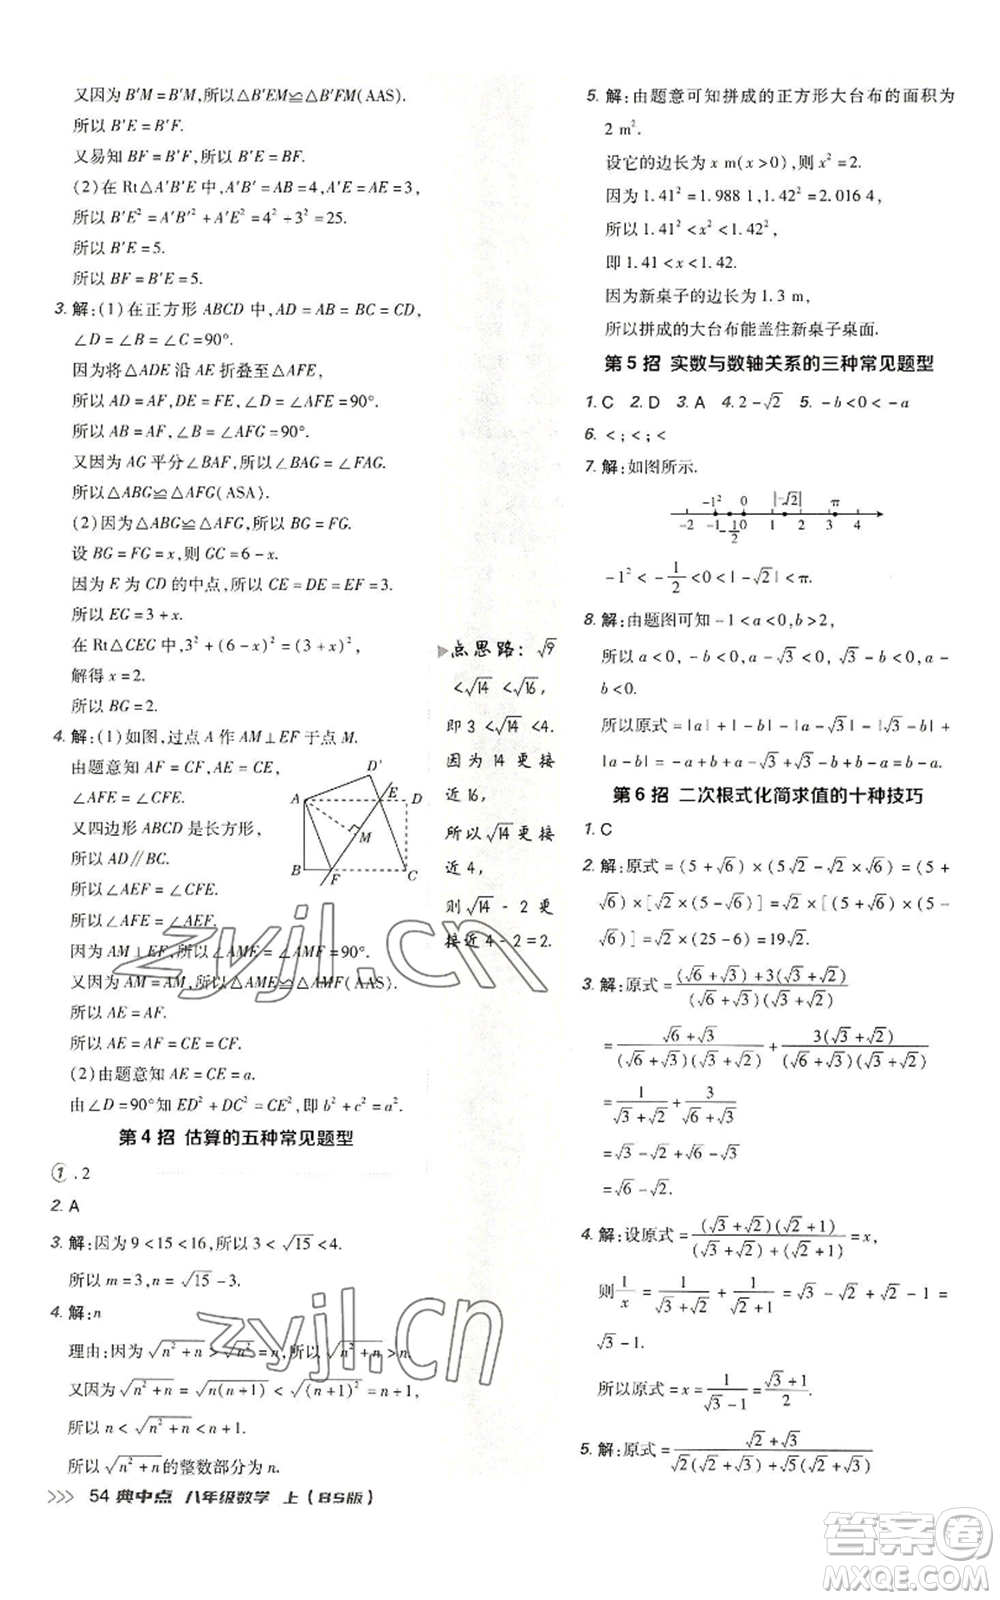 又因为 B′M = B′M,所以△B′EM≌△B′FM(AAS).
所以 B′E = B′F.
又易知 BF = B′F,所以 B′E = BF.
(2)在 Rt△A′B′E 中,A′B′ = AB = 4,A′E = AE = 3,
所以 B′E² = A′B′² + A′E² = 4² + 3² = 25.
所以 B′E = 5.
所以 BF = B′E = 5.
3. 解:(1)在正方形 ABCD 中,AD = AB = BC = CD,
∠D = ∠B = ∠C = 90°.
因为将△ADE 沿 AE 折叠至△AFE,
所以 AD = AF,∠D = ∠AFE = 90°.
所以 AB = AF,∠AFG = 90°.
又因为 AG 平分∠BAF,所以∠BAG = ∠FAG.
所以△ABG≌△AFG(ASA).
(2)因为△ABG≌△AFG,所以 BG = FG.
设 BG = FG = x,则 GC = 6 - x.
因为 E 为 CD 的中点,所以 CE = DE = EF = 3.
所以 EG = 3 + x.
在 Rt△CEG 中,3² + (6 - x)² = (3 + x)²,
解得 x = 2.
所以 BG = 2.
4. 解:(1)如图,过点 A 作 AM⊥EF 于点 M.
由题意知 AF = CF,AE = CE,
∠AFE = ∠CFE.
又四边形 ABCD 是长方形,
所以 AD∥BC.
所以∠AEF = ∠CFE.
所以∠AFE = ∠AEF.
因为 AM⊥EF,所以∠AMF = ∠AME = 90°.
又因为 AM = AM,所以△AME≌△AMF(AAS).
所以 AE = AF.
所以 AE = AF = CE = CF.
(2)由题意知 AE = CE = a.
由∠D = 90°知 ED² + DC² = CE²,即 b² + c² = a².
D′
A
E
D
M
B
F
C
第 4 招 估算的五种常见题型
1. 2
2. A
3. 解:因为 9 < 15 < 16,所以 3 < √15 < 4.
所以 m = 3,n = √15 - 3.
4. 解:n
理由:因为 √(n² + n) > √n² = n,所以 √(n² + n) > n.
又因为 √(n² + n) = √(n(n + 1)) < √((n + 1)²) = n + 1,
所以 n < √(n² + n) < n + 1.
所以 √(n² + n) 的整数部分为 n.
点思路: √9
< √14 < √16,
即 3 < √14 < 4.
因为 14 更接
近 16,
所以 √14 更接
近 4,
则 √14 - 2 更
接近 4 - 2 = 2.
5. 解:由题意可知拼成的正方形大台布的面积为
2 m².
设它的边长为 x m(x > 0),则 x² = 2.
因为 1.41² = 1.988 1,1.42² = 2.016 4,
所以 1.41² < x² < 1.42².
即 1.41 < x < 1.42.
因为新桌子的边长为 1.3 m,
所以拼成的大台布能盖住新桌子桌面.
第 5 招 实数与数轴关系的三种常见题型
1. C 2. D 3. A 4. 2 - √2 5. -b < 0 < -a
6. <;<;<
7. 解:如图所示.
-1² 0 |-√2| π
-2 -1 -1/2 0 1 2 3 4
-1² < -1/2 < 0 < |-√2| < π
8. 解:由题图可知 -1 < a < 0,b > 2,
所以 a < 0,-b < 0,a - √3 < 0,√3 - b < 0,a - b
< 0.
所以原式 = |a| + |-b| - |a - √3| - |√3 - b| +
|a - b| = -a + b + a - √3 + √3 - b - a + b = b - a.
第 6 招 二次根式化简求值的十种技巧
1. C
2. 解:原式 = (5 + √6) × (5√2 - √2 × √6) = (5 +
√6) × [√2 × (5 - √6)] = √2 × [(5 + √6) × (5 -
√6)] = √2 × (25 - 6) = 19√2.
3. 解:原式 = ((√6 + √3) + 3(√3 + √2))/((√6 + √3)(√3 + √2))
= (√6 + √3)/((√6 + √3)(√3 + √2)) + 3(√3 + √2)/((√6 + √3)(√3 + √2))
= 1/(√3 + √2) + 3/(√6 + √3)
= √3 - √2 + √6 - √3
= √6 - √2.
4. 解:设原式 = ((√3 + √2)(√2 + 1))/((√3 + √2) + (√2 + 1)) = x,
则 1/x = 1/(√2 + 1) + 1/(√3 + √2) = √2 - 1 + √3 - √2 =
√3 - 1.
所以原式 = x = 1/(√3 - 1) = (√3 + 1)/2.
5. 解:原式 = (√2 + √3)/(√2(√2 + √3) + √5(√2 + √3))
54 典中点 八年级数学 上(BS版)
zyjl.cn
zyjl.cn
答案卷
MXQE.COM